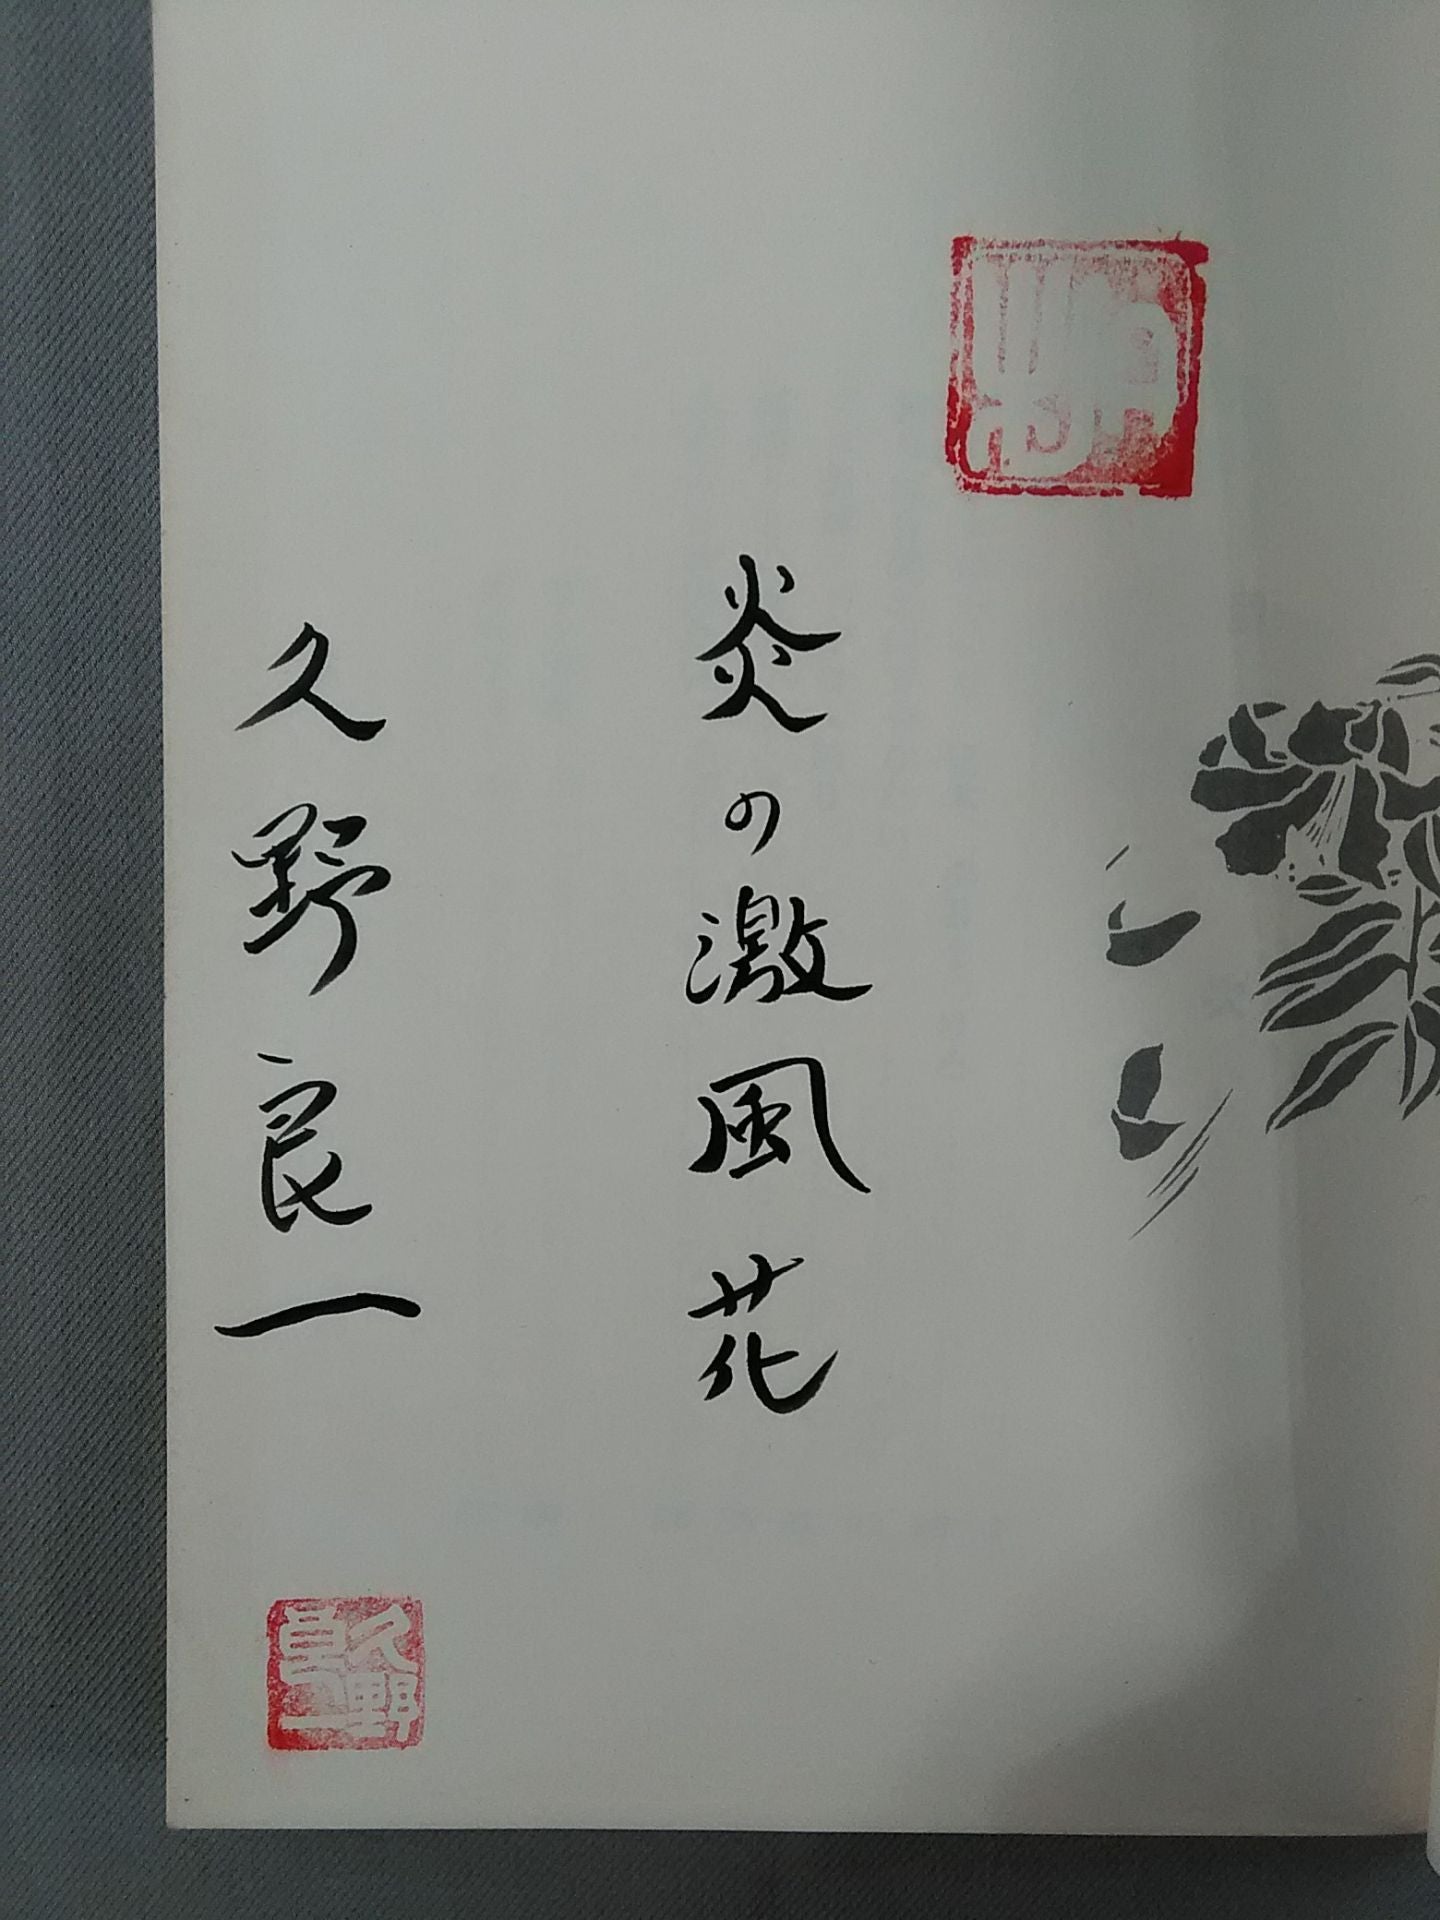 炎の激風花
久野良一
久野
良一